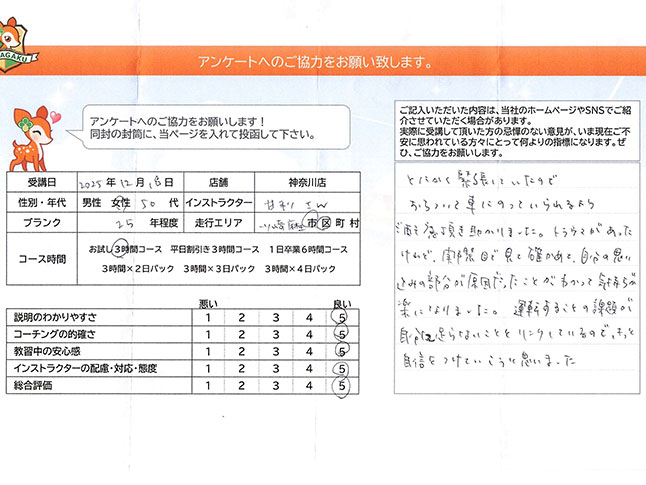 AGAKU
アンケートへのご協力をお願い致します。
アンケートへのご協力をお願いします！
同封の封筒に、当ページを入れて投函して下さい。
受講日 2025年 12月 日 店舗 神奈川店
性別・年代 男性 女性 50 代 インストラクター
ブランク 25 年程度 走行エリア 市 区 町 村
コース時間 お試し3時間コース 平日割引き3時間コース 1日卒業6時間コース
3時間×2日パック 3時間×3日パック 3時間×4日パック
悪い 良い
説明のわかりやすさ 1 2 3 4 5
コーチングの的確さ 1 2 3 4 5
教習中の安心感 1 2 3 4 5
インストラクターの配慮・対応・態度 1 2 3 4 5
総合評価 1 2 3 4 5
ご記入いただいた内容は、当社のホームページやSNSでご紹
介させていただく場合があります。
実際に受講して頂いた方の忌憚のない意見が、いま現在ご不
安に思われている方々にとって何よりの指標になります。ぜ
ひ、ご協力をお願いします。
とにかく緊張していたので
おちついて車にのっていられるよう
頂き助かりました。トラウマがあった
けれど、実際目で見て確かめて、自分の思い
込みの部分が原因だったことがわかって気持ちが
楽になりました。運転することの課題が
自分に足らないことをリンクしているので、もっと
自信をつけていこうと思いました